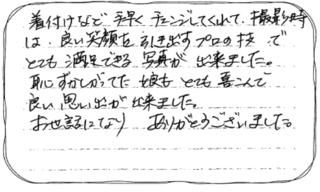 着付けなど手早くチェンジしてくれて、撮影時
は、良い笑顔を引き出すプロの技で
とても満足できる写真が出来ました。
恥ずかしがってた娘もとても喜こんで
良い思い出が出来ました。
お世話になりありがとうございました。